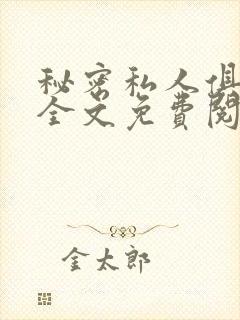 秘密私人俱
全文免費閱
金太郎